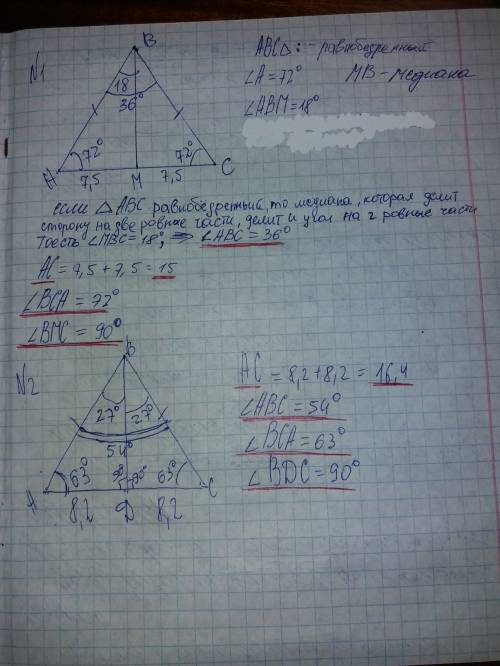 N1
B
18
36°
72°
72°
A
7,5
M
7,5
C
ABC△: - равнобедренный
∠A = 72°
MB - медиана
∠ABM = 18°
если △ ABC равнобедренный, то медиана, которая делит
сторону на две ровные части, делит и угол на 2 ровные части
тоесть ∠MBC = 18°, ⇒ ∠ABC = 36°
AC = 7,5 + 7,5 = 15
∠BCA = 72°
∠BMC = 90°
N2
B
27°
27°
54°
63°
90°
90°
63°
A
8,2
D
8,2
C
AC = 8,2 + 8,2 = 16,4
∠ABC = 54°
∠BCA = 63°
∠BDC = 90°